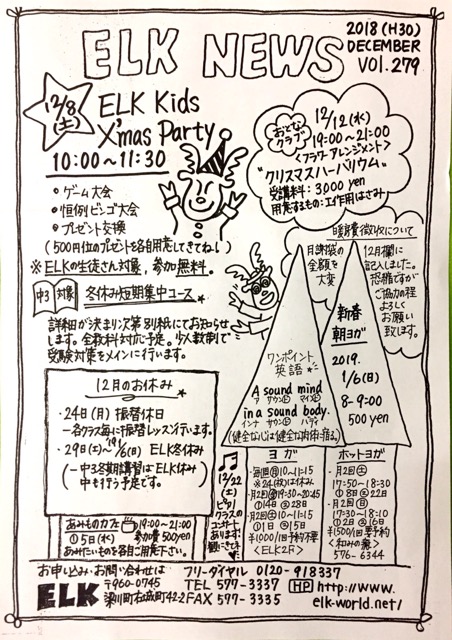 ELK NEWS
2018 (H30)
DECEMBER
VOL.279
12/8
(土)
ELK Kids
X'mas Party
10:00〜11:30
・ゲーム大会
・恒例ビンゴ大会
・プレゼント交換
(500円位のプレゼントを各自用意してきてね!)
※ELKの生徒さん対象, 参加無料。
おとな
クラブ
12/12(水)
19:00〜21:00
<フラワーアレンジメント>
"クリスマスハーバリウム"
受講料: 3,000 yen
用意するもの:工作用はさみ
中3 対象 冬休み短期集中コース
詳細が決まり次第別紙にてお知らせ
します。全教科対応予定。少人数制で
受験対策をメインに行います。
暖房費徴収について
月謝袋の
金額を
大変
12月欄に
記入しました。
恐縮ですが
ご協力の程
よろしく
お願い
致します。
ワンポイント
英語
A sound mind
ア サウンド マインド
in a sound body.
インナ サウンド バディ
(健全な心は健全な肉体に宿る)
新春
朝ヨガ
2019.
1/6(日)
8-9:00
500 yen
12月のお休み
・24日(月) 振替休日
−各クラス毎に振替レッスン行います。
・29日(土)〜'19 1/6(日) ELK冬休み
(−中3冬期講習はELK休み
中も行う予定です。
あみものカフェ 19:00〜21:00
①5日(水) 参加費 500yen
あみたいものを各自ご用意下さい。
12/22
(土)
ピアノ
クラスの
コンサート
あります!
ヨガ
・毎週(月)10〜11:15
※24(休)は休み
・月2回(金)19:30〜20:45
①14日②28日
・月2回(土)10〜11:15
①1日②15日
¥1000/1回 予約不要
<ELK2F>
ホットヨガ
・月2回(土)
17:50〜18:30
①8日②22日
・月2回(日)
17:30〜18:10
①2日②16日
¥1500/1回 要予約
576-6344
お申し込み・お問い合わせは フリーダイヤル 0120-918337
ELK 〒960-0745 TEL 577-3337 HP http://www.
梁川町右城町42-2 FAX 577-3335 elk-world.net/